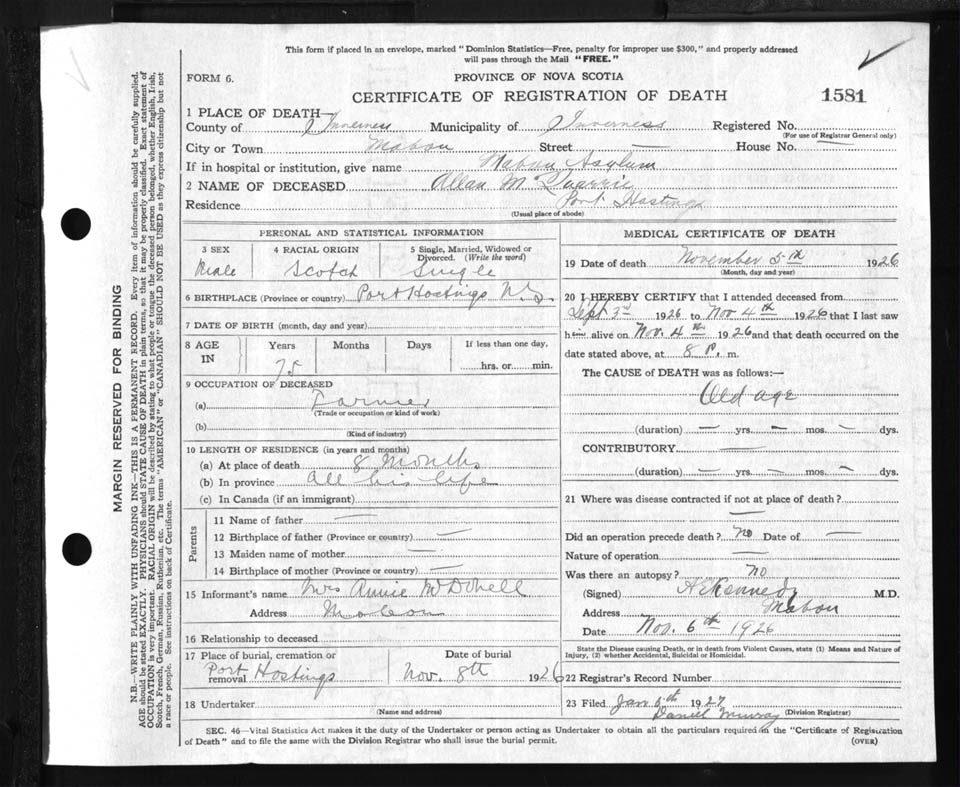 This form if placed in an envelope, marked "Dominion Statistics—Free, penalty for improper use $300," and properly addressed
will pass through the Mail "FREE."
FORM 6.
PROVINCE OF NOVA SCOTIA
CERTIFICATE OF REGISTRATION OF DEATH
1581
1 PLACE OF DEATH—
County of Inverness Municipality of Inverness Registered No.
(For use of Registrar General only)
City or Town Mabou Street — House No. —
If in hospital or institution, give name Mabou Asylum
2 NAME OF DECEASED Allan McQuarrie
Residence Port Hastings
(Usual place of abode)
PERSONAL AND STATISTICAL INFORMATION
3 SEX
Male
4 RACIAL ORIGIN
Scotch
5 Single, Married, Widowed or
Divorced. (Write the word)
Single
6 BIRTHPLACE (Province or country) Port Hastings N.S.
7 DATE OF BIRTH (month, day and year)
8 AGE
IN
Years Months Days If less than one day,
75 hrs. or min.
9 OCCUPATION OF DECEASED
(a) Farmer
(Trade or occupation or kind of work)
(b)
(Kind of industry)
10 LENGTH OF RESIDENCE (in years and months)
(a) At place of death 8 Months
(b) In province all his life
(c) In Canada (if an immigrant)
Parents
11 Name of father —
12 Birthplace of father (Province or country) —
13 Maiden name of mother —
14 Birthplace of mother (Province or country) —
15 Informant's name Mrs Annie
Address
16 Relationship to deceased
17 Place of burial, cremation or
removal Port Hastings
Date of burial
Nov. 8th 1926
18 Undertaker
(Name and address)
MEDICAL CERTIFICATE OF DEATH
19 Date of death November 5th 1926
(Month, day and year)
20 I HEREBY CERTIFY that I attended deceased from
Sept 3rd 1926 to Nov 4th 1926 that I last saw
him alive on Nov. 4th 1926 and that death occurred on the
date stated above, at 8 p. m.
The CAUSE of DEATH was as follows:—
Old age
(duration) — yrs. — mos. — dys.
CONTRIBUTORY —
(duration) — yrs. — mos. — dys.
21 Where was disease contracted if not at place of death?
—
Did an operation precede death? No Date of —
Nature of operation —
Was there an autopsy? No
(Signed) Kennedy M.D.
Address Mabou
Date Nov. 6th 1926
State the Disease causing Death, or in death from Violent Causes, state (1) Means and Nature of
Injury, (2) whether Accidental, Suicidal or Homicidal.
22 Registrar's Record Number
23 Filed Jan 6th 1927
Daniel Murray (Division Registrar)
SEC. 46—Vital Statistics Act makes it the duty of the Undertaker or person acting as Undertaker to obtain all the particulars required on the "Certificate of Registration
of Death" and to file the same with the Division Registrar who shall issue the burial permit.
(OVER)
MARGIN RESERVED FOR BINDING
N.B.—WRITE PLAINLY WITH UNFADING INK—THIS IS A PERMANENT RECORD. Every item of information should be carefully supplied.
AGE should be stated EXACTLY. PHYSICIANS should STATE CAUSE OF DEATH in plain terms, so that it may be properly classified. Exact statement of
OCCUPATION is very important. RACIAL ORIGIN will be described by stating to what people or tongue the deceased person belonged, whether English, Irish,
Scotch, French, German, Russian, Ruthenian, etc. The terms "AMERICAN" or "CANADIAN" SHOULD NOT BE USED as they express citizenship but not
a race or people. See instructions on back of Certificate.